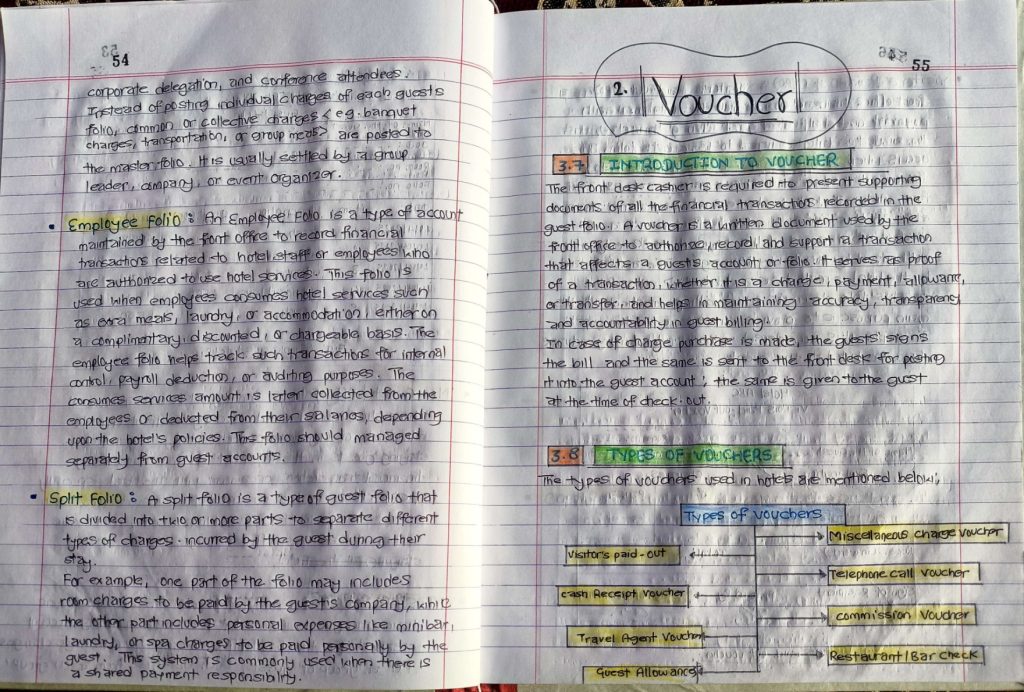 54
corporate delegation, and conference attendees.
Instead of posting individual charges of each guests
folio, common or collective charges < eg. banquet
charges, transportation, or group meals> are posted to
the master folio. It is usually settled by a group
leader, company, or event organizer.
• Employee Folio : An Employee Folio is a type of account
maintained by the front office to record financial
transactions related to hotel staff or employees who
are authorized to use hotel services. This folio is
used when employees consumes hotel services such
as extra meals, laundry, or accommodation, either on
a complimentary, discounted, or chargeable basis. The
employee folio helps track such transactions for internal
control, payroll deduction, or auditing purposes. The
consumes services amount is later collected from the
employees or deducted from their salaries, depending
upon the hotel's policies. This folio should managed
separately from guest accounts.
• Split Folio : A split folio is a type of guest folio that
is divided into two or more parts to separate different
types of charges incurred by the guest during their
stay.
For example, one part of the folio may includes
room charges to be paid by the guest's company, while
the other part includes personal expenses like minibar,
laundry, or spa charges to be paid personally by the
guest. This system is commonly used when there is
a shared payment responsibility.
55
2. Voucher
3.7 INTRODUCTION TO VOUCHER
The front desk cashier is required to present supporting
documents of all the financial transactions recorded in the
guest folio. A voucher is a written document used by the
front office to authorize, record, and support a transaction
that affects a guest's account or folio. It serves as proof
of a transaction, whether it is a charge, payment, allowance,
or transfer, and helps in maintaining accuracy, transparency
and accountability in guest billing.
In case of charge purchase is made, the guests signs
the bill and the same is sent to the front desk for posting
it into the guest account; the same is given to the guest
at the time of check-out.
3.8 TYPES OF VOUCHERS
The types of vouchers used in hotels are mentioned below;
Types of vouchers
Miscellaneous charge voucher
Visitor's paid-out
Telephone call voucher
cash Receipt voucher
commission voucher
Travel Agent Voucher
Restaurant/Bar check
Guest Allowance